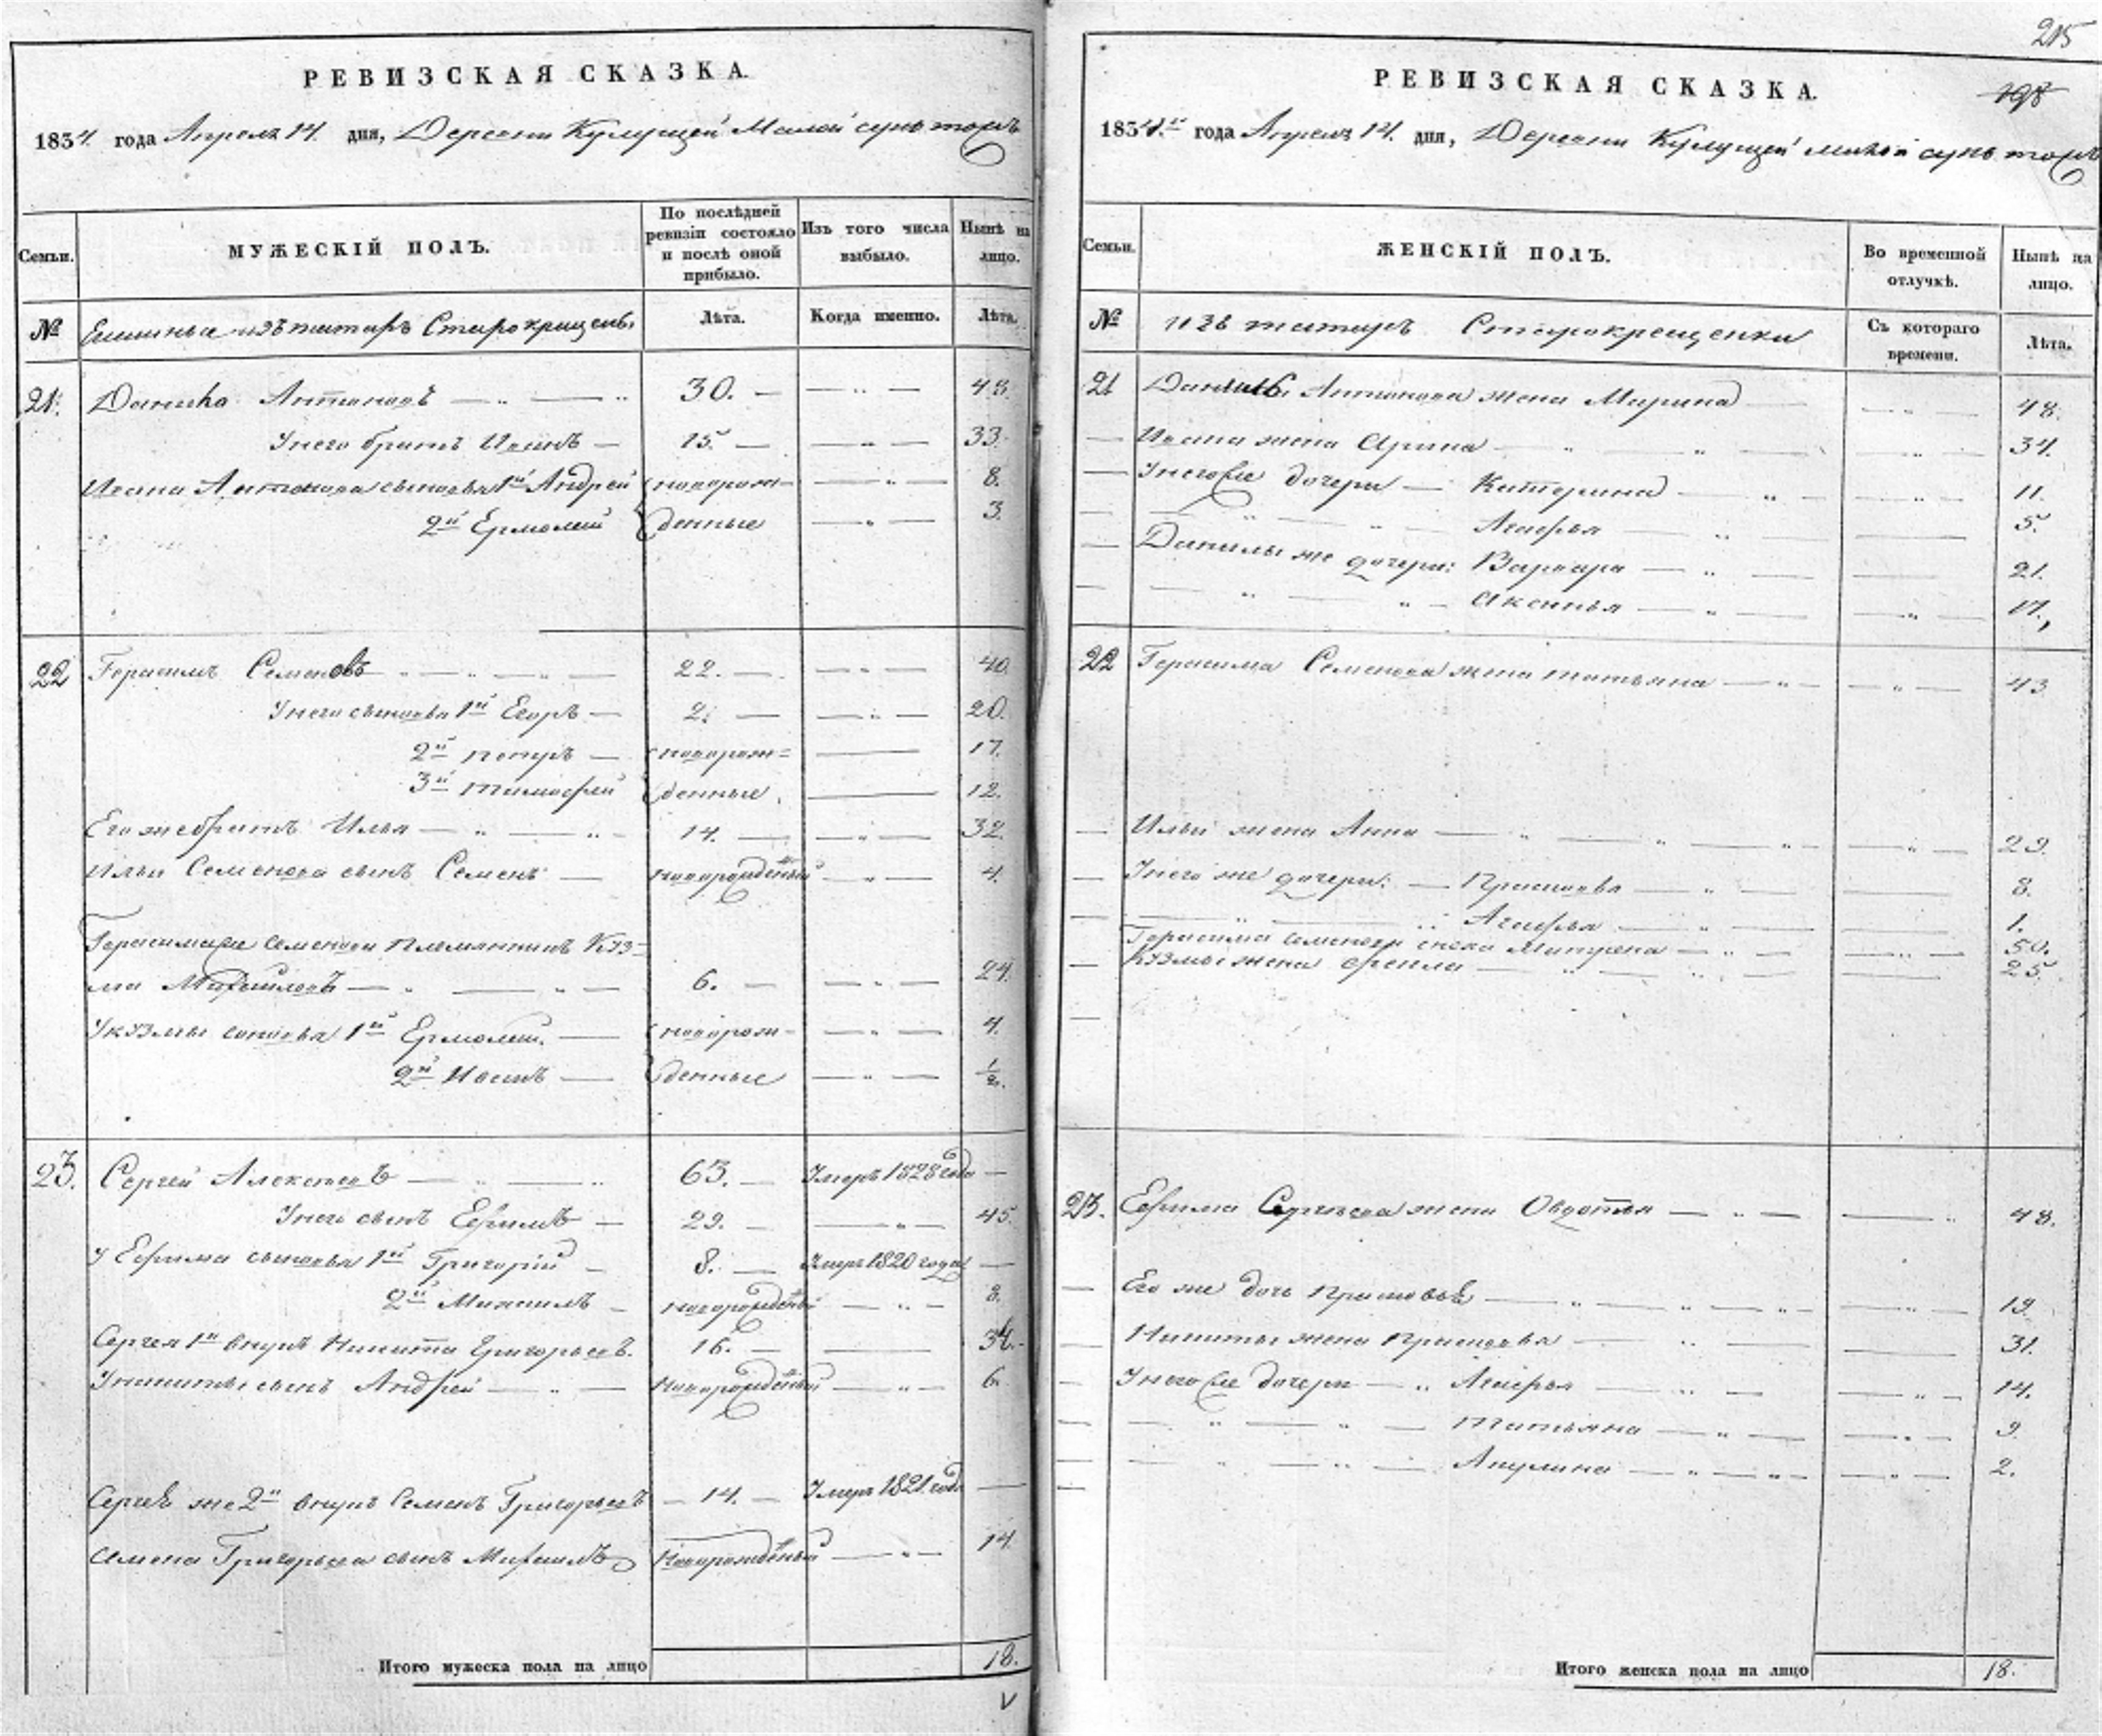 РЕВИЗСКАЯ СКАЗКА.
1834. года Апреля 14. дня, Деревни Кулущей Малой сунь тожъ
Семьи.
МУЖЕСКІЙ ПОЛЪ.
По послѣдней ревизіи состояло и послѣ оной прибыло.
Изъ того числа выбыло.
Нынѣ на лицо.
№
изъ татаръ Старокрещены
Лѣта.
Когда именно.
Лѣта.
21. Данила Антоновъ 30. 48.
У него братъ Иванъ 15. 33.
Ивана Антонова сыновья 1й Андрей новорож- 8.
2й Ермолай денные 3.
22 Герасимъ Семеновъ 22. 40.
У него сыновья 1й Егоръ 2. 20.
2й Петръ новорож= 17.
3й Тимофей денные. 12.
Его же братъ Илья 14. 32.
Ильи Семенова сынъ Семенъ новорожденный 4.
Герасима же Семенова племянникъ Куз=
ма Михайловъ 6. 24.
У Кузмы сыновья 1й Ермолай. новорож- 4.
2й Иванъ денные 1/2.
23. Сергей Алексеевъ 63. Умеръ 1828 года
У него сынъ Ефимъ 29. 45.
У Ефима сыновья 1й Григорій 8. Умеръ 1820 года
2й Михаилъ новорожденный 8.
Сергея 1й внукъ Никита Григорьевъ. 16. 34.
У Никиты сынъ Андрей новорожденный 6
Сергея же 2й внукъ Семенъ Григорьевъ 14. Умеръ 1821. года
Семена Григорьева сынъ Михаилъ Новорожденный 14.
Итого мужеска пола на лицо 18.
V
215
198
РЕВИЗСКАЯ СКАЗКА.
1834го года Апреля 14. дня, Деревни Кулущей малой сунь тожъ
Семьи.
ЖЕНСКІЙ ПОЛЪ.
Во временной отлучкѣ.
Нынѣ на лицо.
№
изъ татаръ Старокрещенки
Съ котораго времени.
Лѣта.
21 Данилы Антонова жена Марина 48.
Ивана жена Арина 34.
У него же дочери Катерина 11.
Агафья 5.
Данилы же дочери: Варвара 21.
Аксинья 17.
22 Герасима Семенова жена татьяна 43
Ильи жена Анна 29.
У него же дочери: Прасковья 8.
Агафья 1.
Герасима Семенова сноха Матрена 50.
Кузмы жена Фекла 25.
23. Ефима Сергеева жена Овдотья 48.
Его же дочь Прасковья 19.
Никиты жена Прасковья 31.
У него же дочери Агафья 14.
Татьяна 9.
Акулина 2.
Итого женска пола на лицо 18.